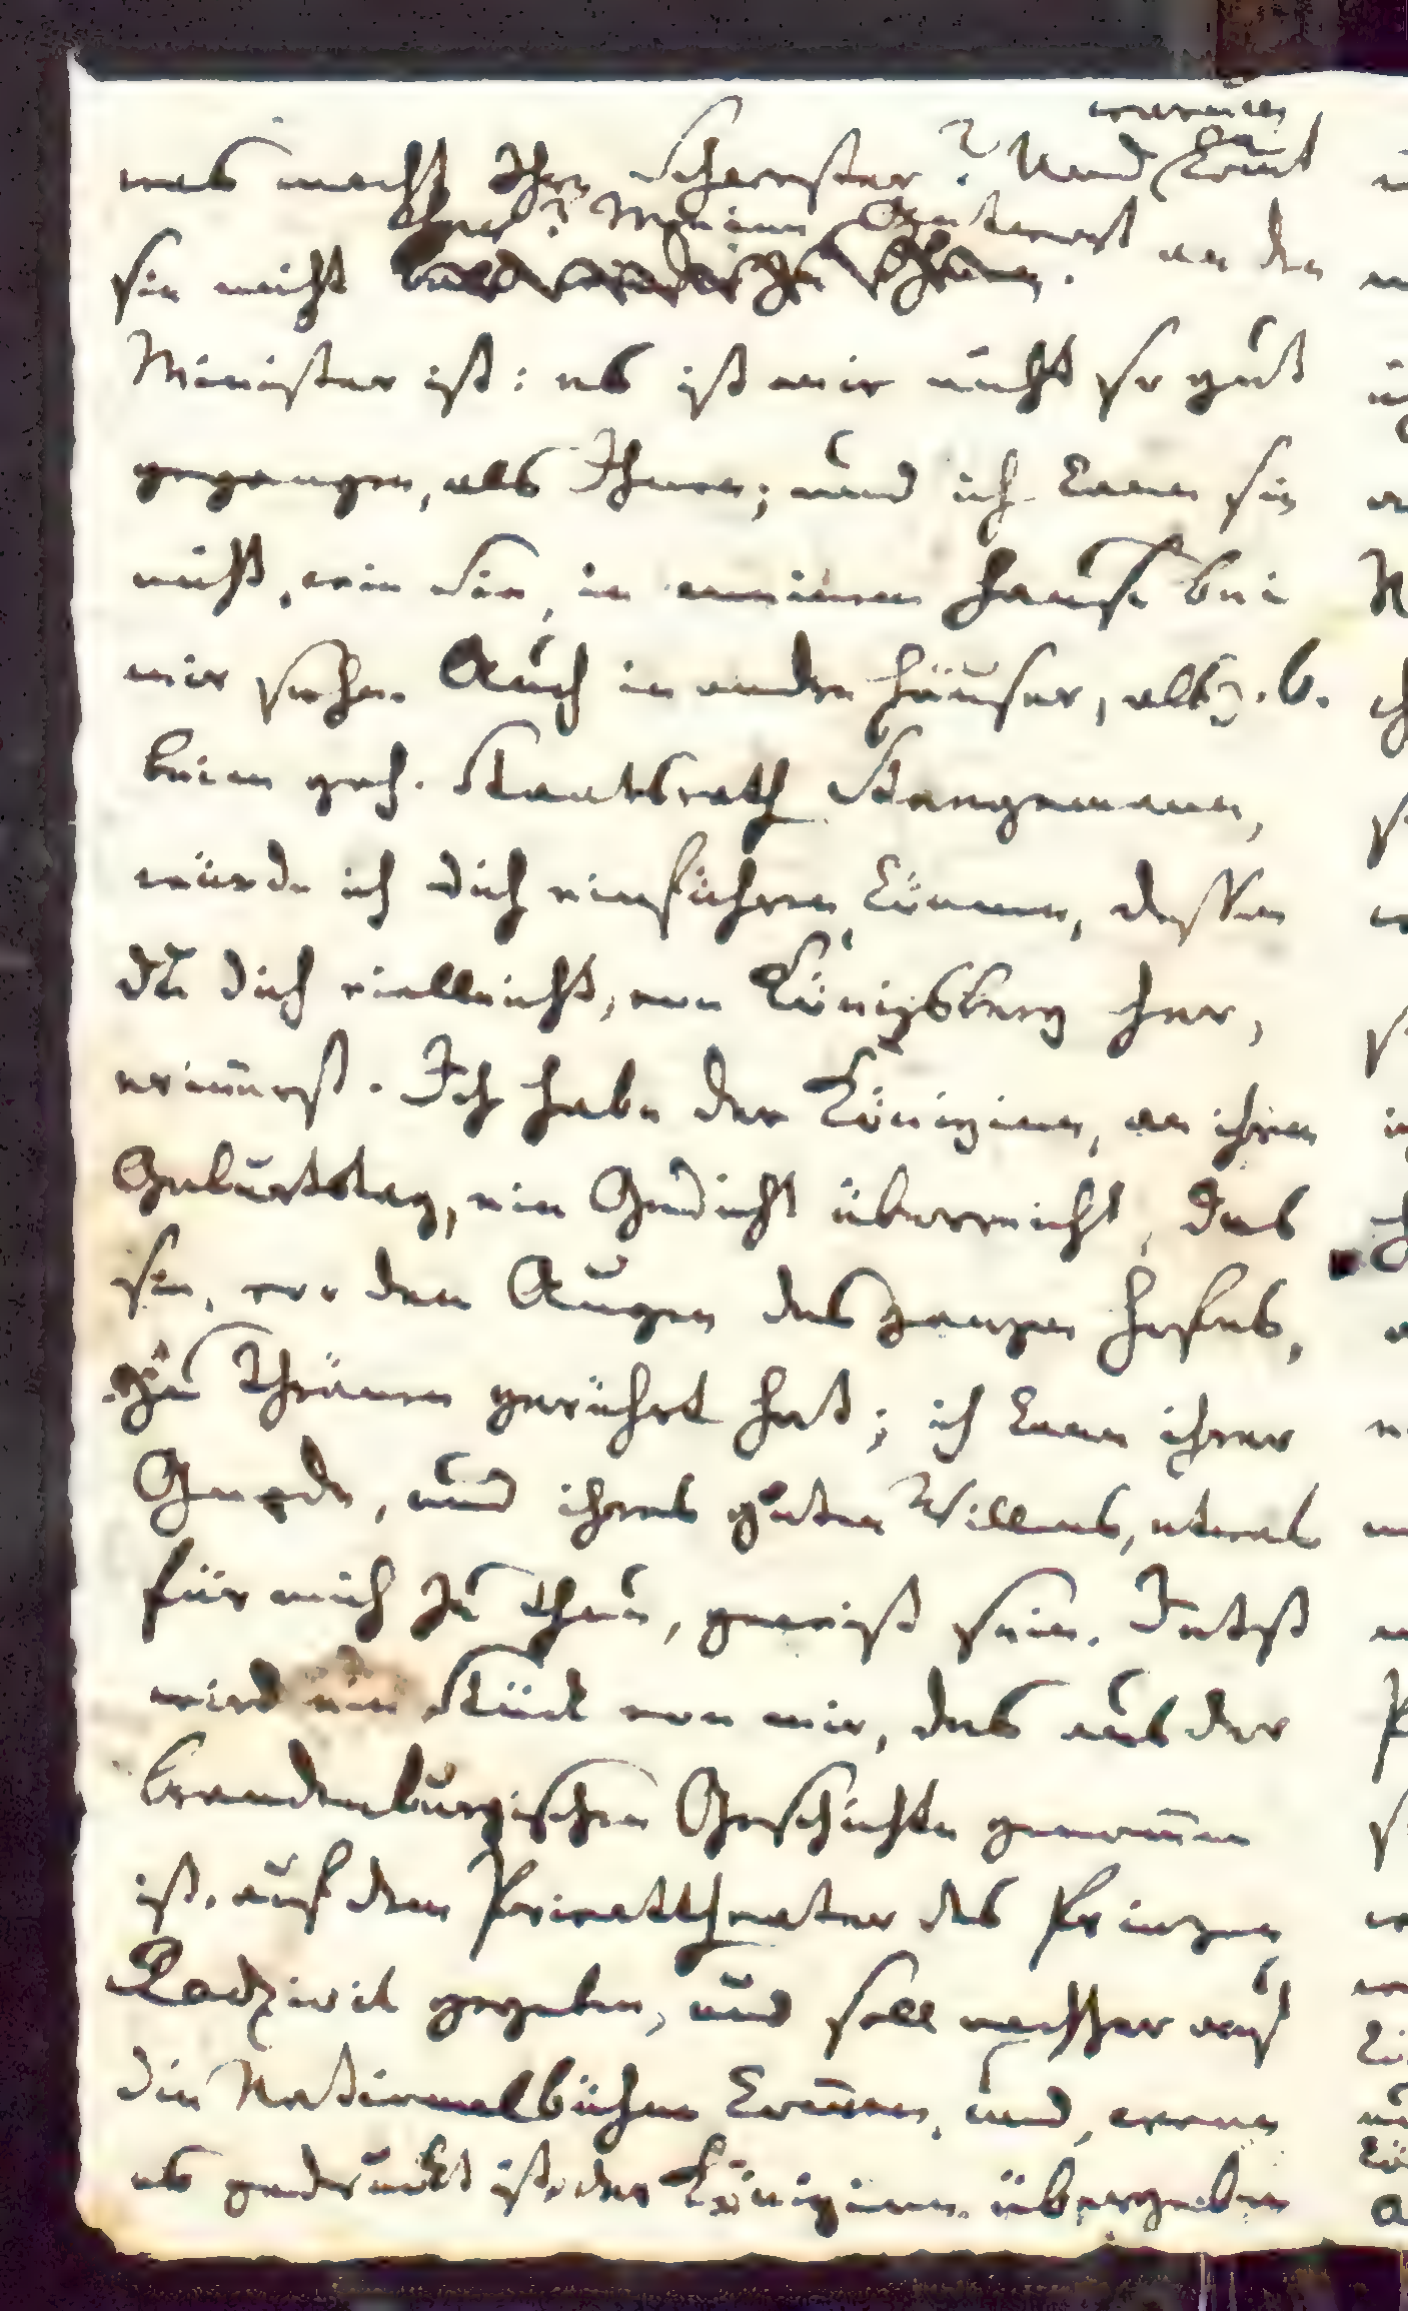 warum
was macht Ihre Schwester? Und kömt
Ehre? Meinem Gutern ist an der
sie nicht
Minister ist: es ist mir nicht so gut
gegangen, als Ihnen; und ich kann sie
nicht, wie Sie, in meinem Hause bei
mir sehn. Auch in andre Häuser, als z. B.
beim geh. Staatsrath Stægemann,
würde ich dich einführen können, dessen
du dich vielleicht, von Königsberg her,
erinnerst. Ich habe der Königinn, an ihrem
Geburtstag, ein Gedicht überreicht, das
sie, vor den Augen des ganzen Hofes,
zu Thränen gerührt hat; ich kann ihrer
Gnade, und ihres guten Willens, etwas
für mich zu thun, gewiß sein. Jetzt
wird ein Stück von mir, das aus der
Brandenburgischen Geschichte genommen
ist, auf dem Privattheater des Prinzen
Radziwil gegeben, und soll nachher auf
die Nationalbühne kommen, und, wenn
es gedruckt ist, der Königinn übergeben